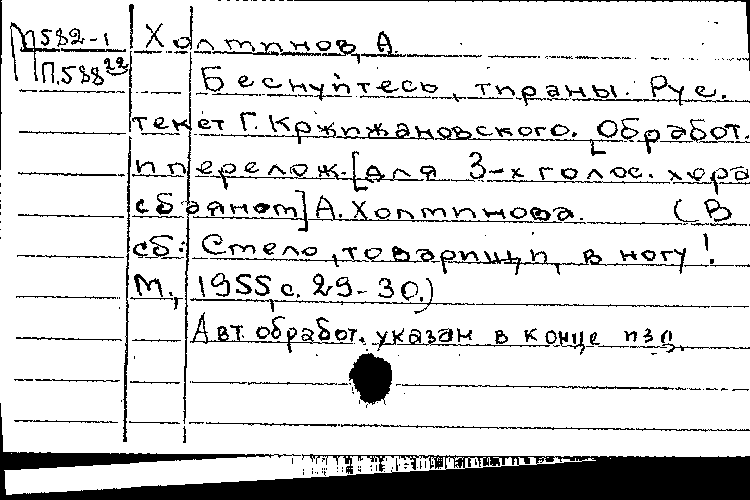 М582-1 Холтинов, А.
П.588²²
Беснуйтесь, тираны. Рус.
текст Г. Кржижановского. Обработ.
и перелож. [для 3-х голос. хора
с баяном] А. Холтинова. (В
сб: Смело, товарищи, в ногу!
М., 1955, с. 29-30.)
Авт. обработ. указан в конце изд.